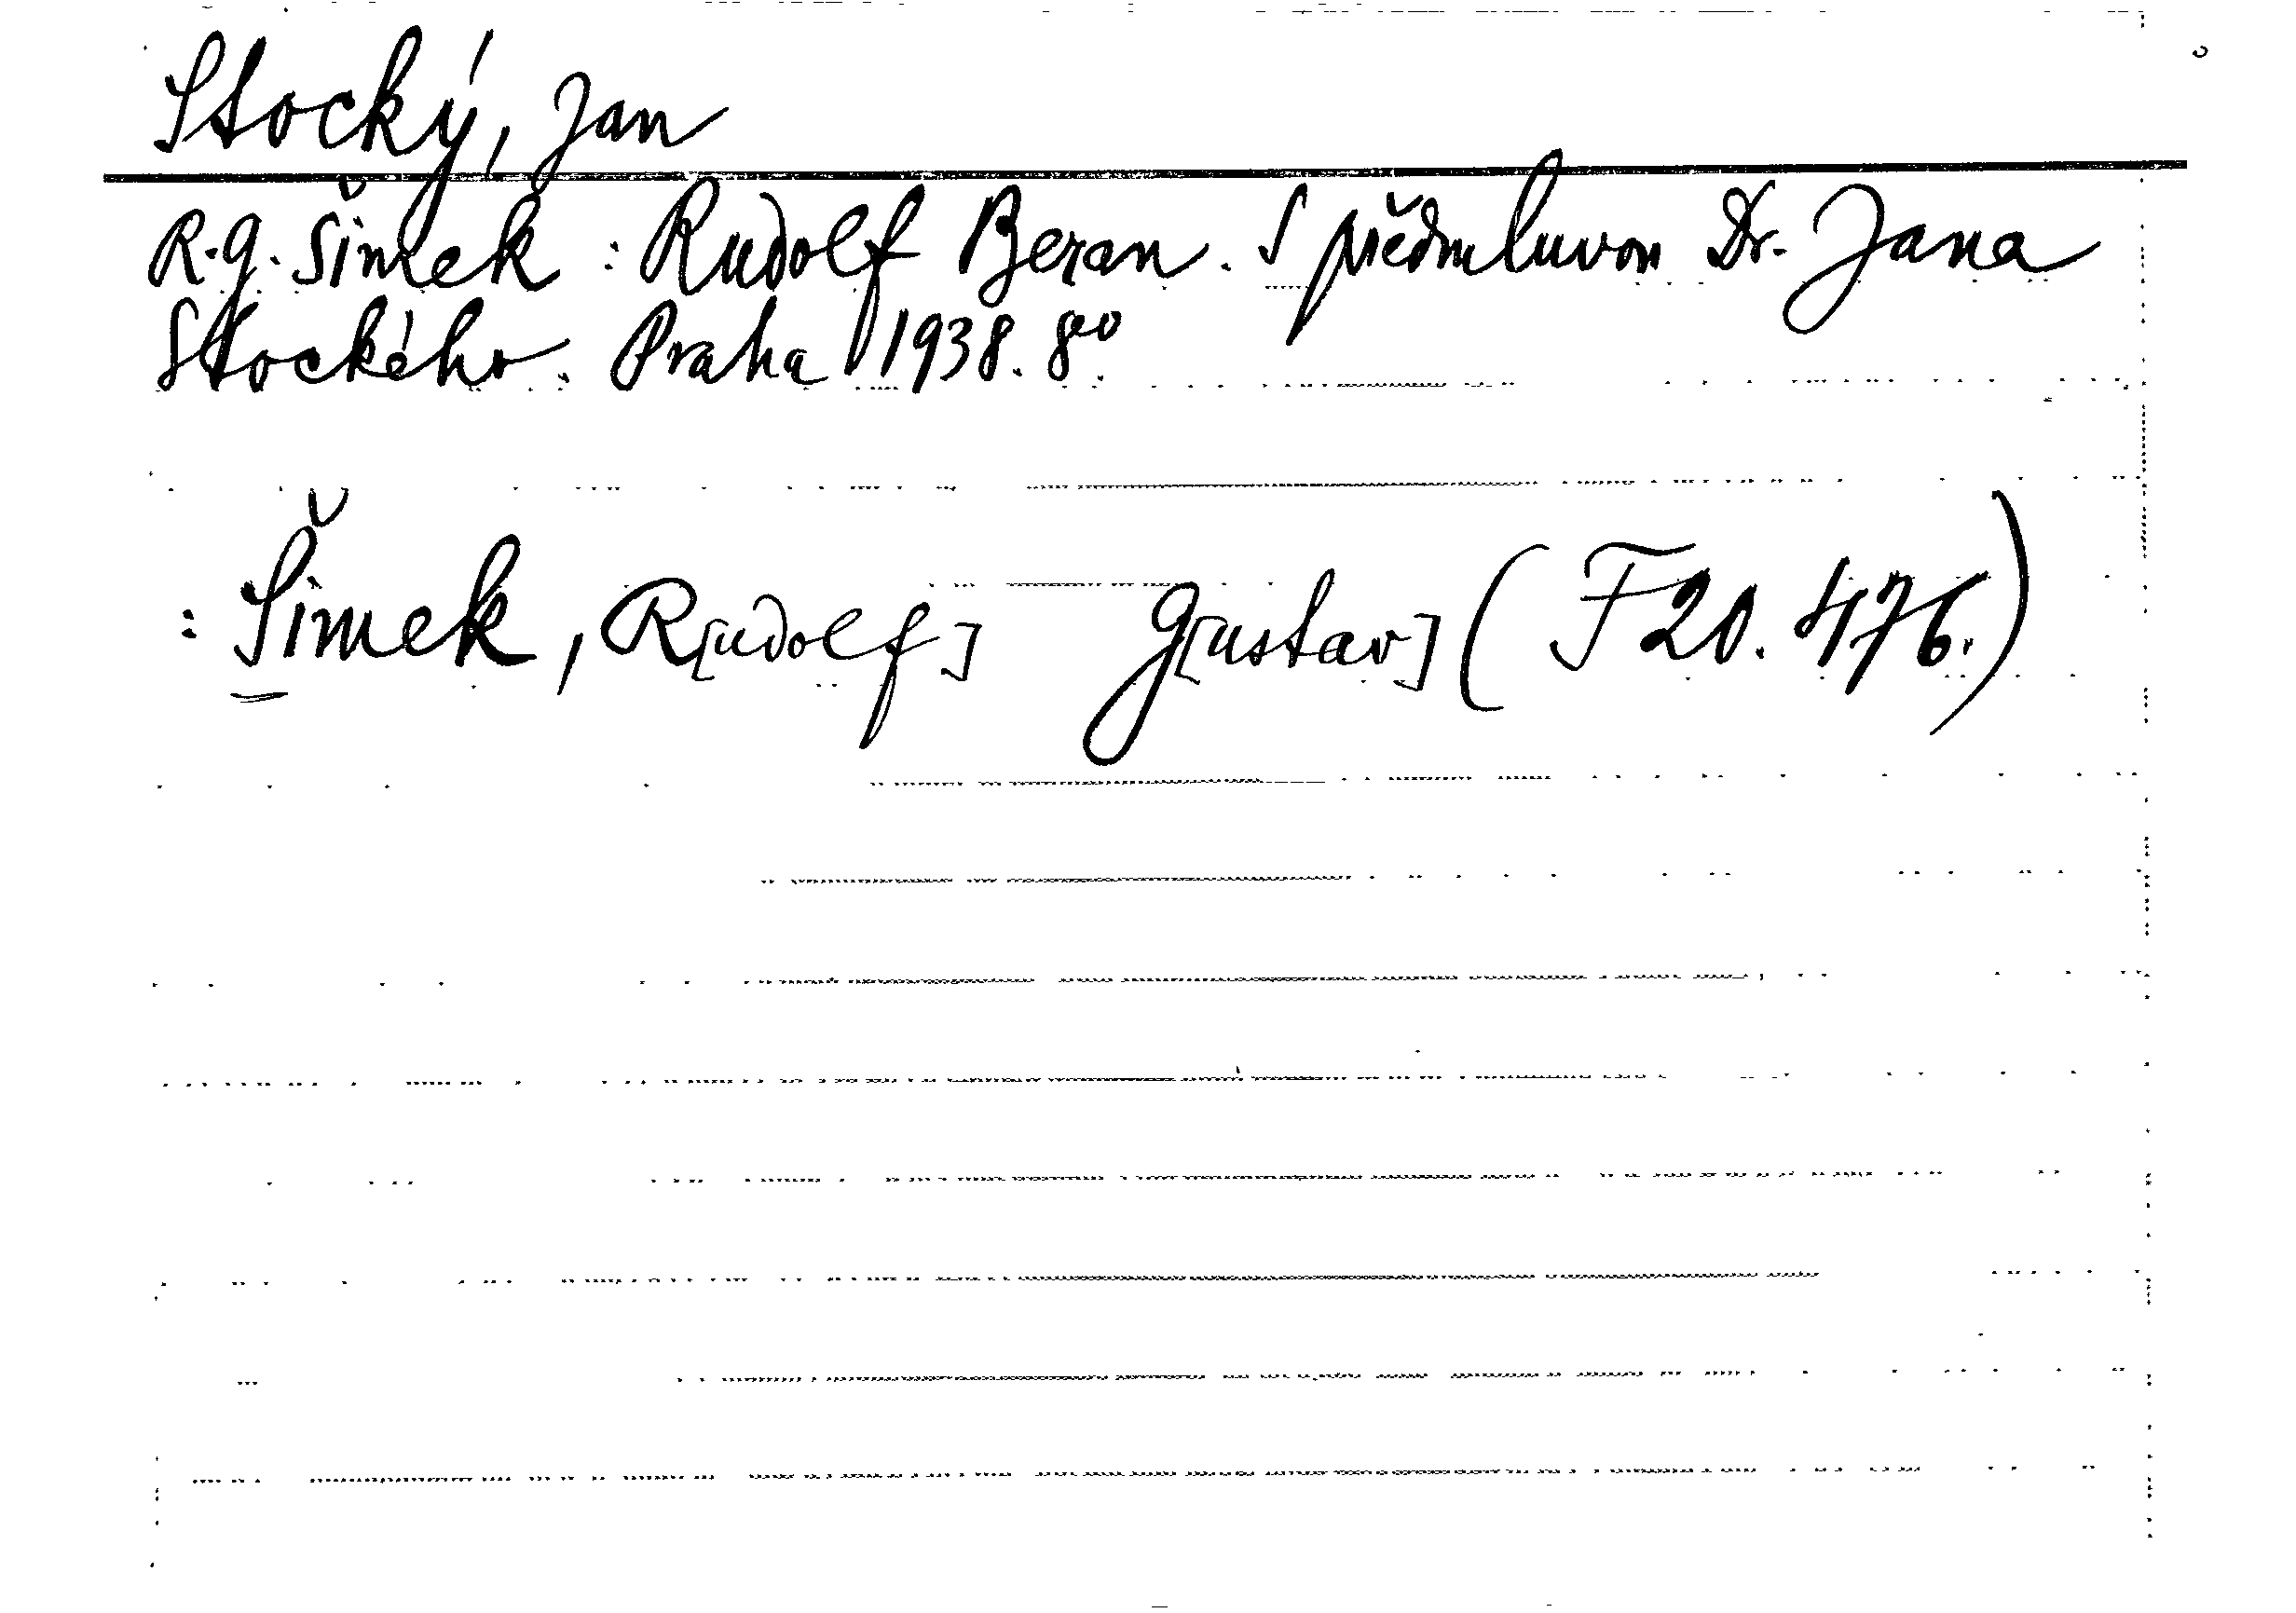 Stocký, Jan
R. G. Šimek : Rudolf Beran. S předmluvou Dr. Jana
Stockého. Praha 1938. 8º.
: Šimek, R[udolf] G[ustav] (F 20.476.)